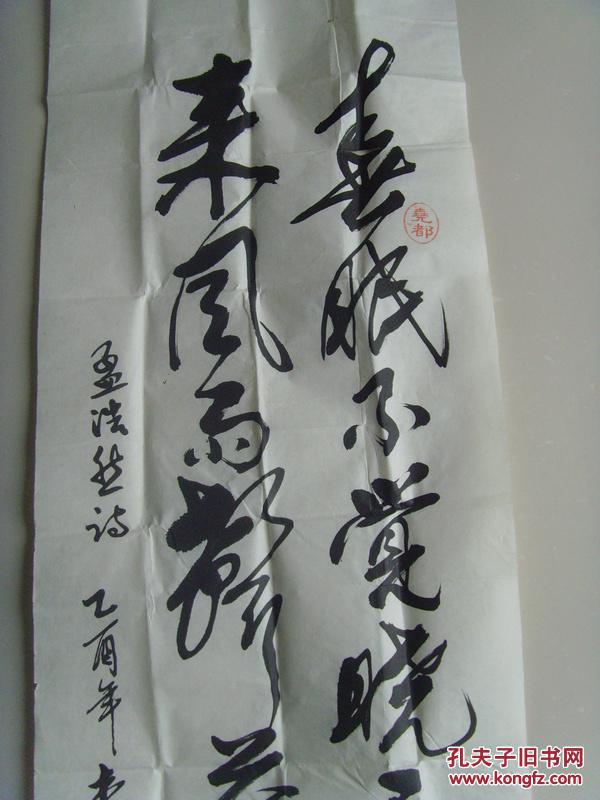 春眠不觉晓
来风雨声花
孟浩然诗 乙酉年
堯都
孔夫子旧书网
www.kongfz.com